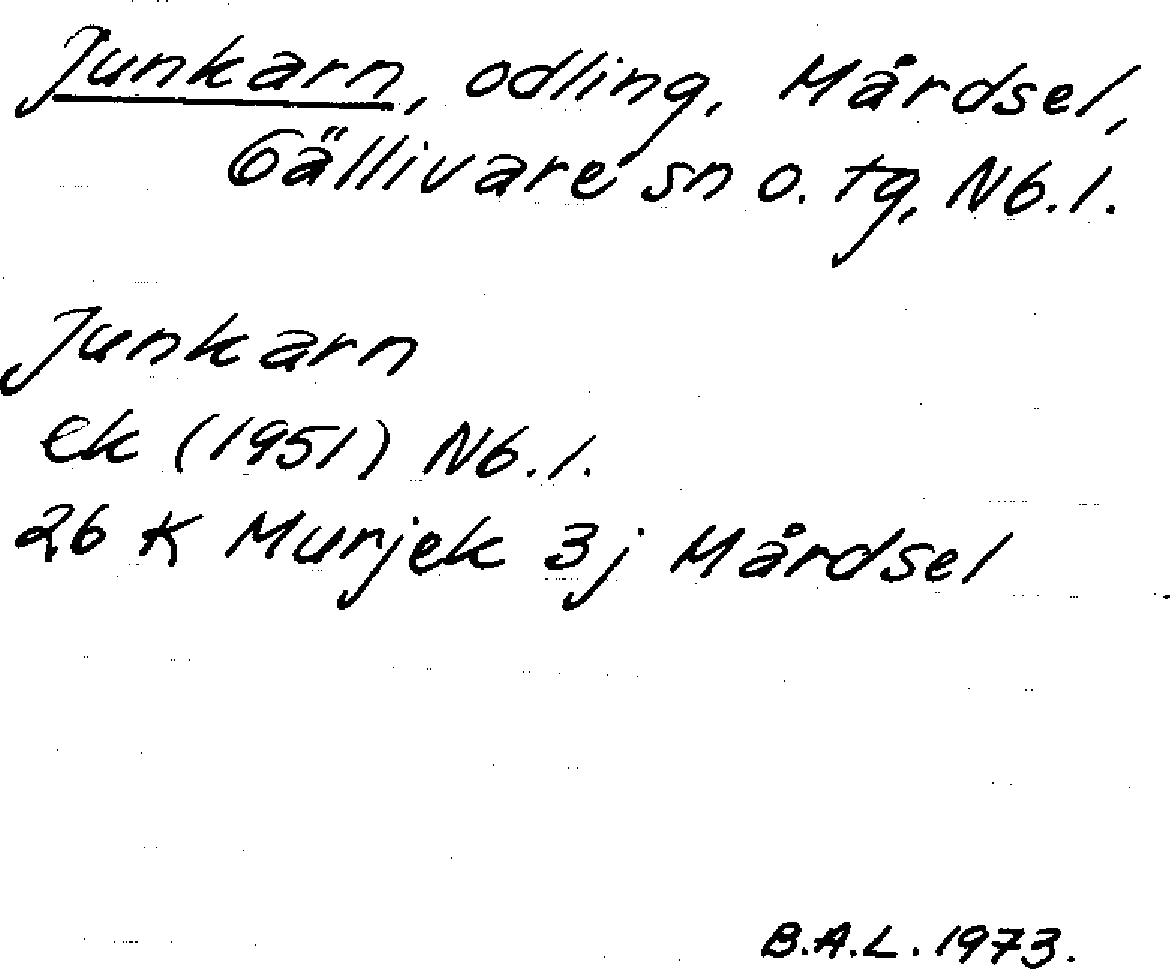 Junkarn, odling, Mårdsel,
Gällivare sn o. tg, Nb. l.
Junkarn
ek (1951) Nb. l.
26 K Murjek 3j Mårdsel
B.A.L. 1973.